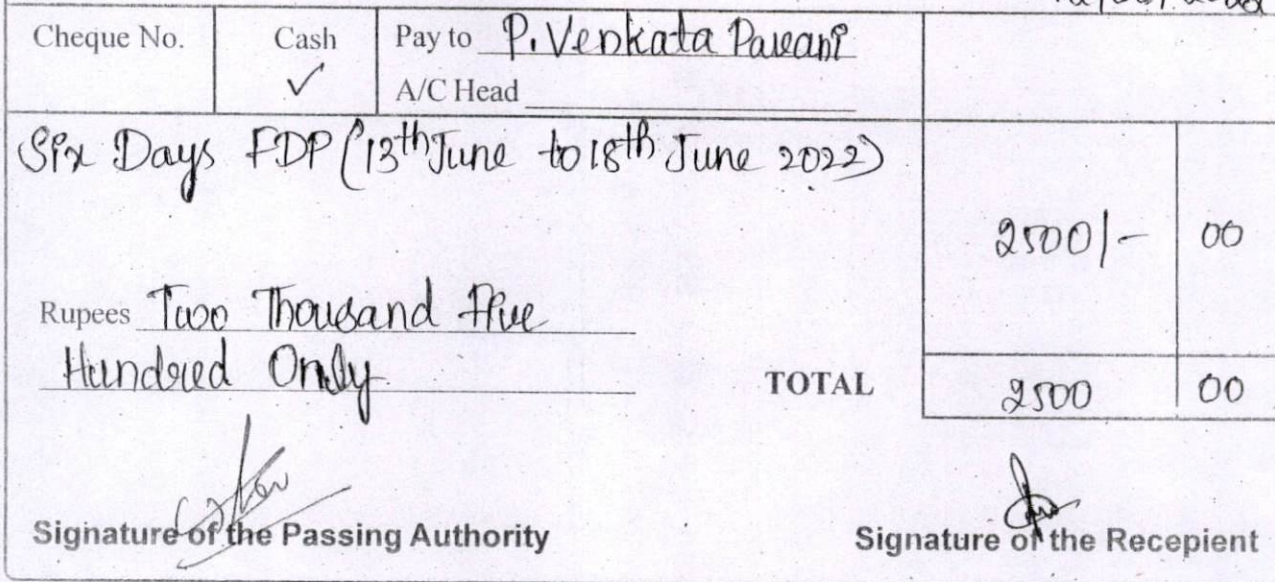 Cheque No. Cash Pay to P. Venkata Pavani
✓ A/C Head
Six Days FDP (13th June to 18th June 2022)
2500/- 00
Rupees Two Thousand Five
Hundred Only
TOTAL 2500 00
Signature of the Passing Authority Signature of the Recepient